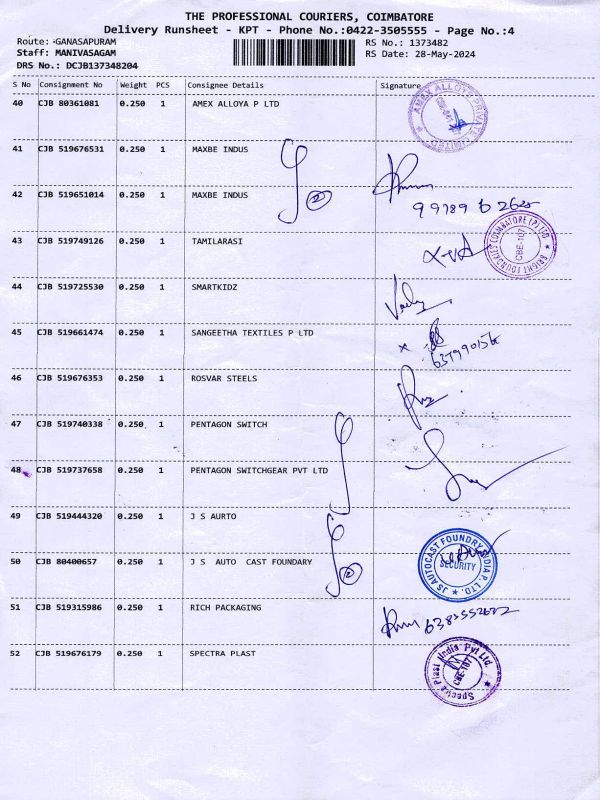 THE PROFESSIONAL COURIERS, COIMBATORE
Delivery Runsheet - KPT - Phone No.:0422-3505555 - Page No.:4
Route: GANASAPURAM
RS No.: 1373482
Staff: MANIVASAGAM
RS Date: 28-May-2024
DRS No.: DCJB137348204
S No Consignment No Weight PCS Consignee Details Signature
40 CJB 80361081 0.250 1 AMEX ALLOYA P LTD
AMEX ALLOYS PRIVATE LIMITED
41 CJB 519676531 0.250 1 MAXBE INDUS
42 CJB 519651014 0.250 1 MAXBE INDUS
43 CJB 519749126 0.250 1 TAMILARASI
BRIGHT FOUNDRIES COIMBATORE (P) LTD
CBE-107
44 CJB 519725530 0.250 1 SMARTKIDZ
45 CJB 519661474 0.250 1 SANGEETHA TEXTILES P LTD
46 CJB 519676353 0.250 1 ROSVAR STEELS
47 CJB 519740338 0.250 1 PENTAGON SWITCH
48 CJB 519737658 0.250 1 PENTAGON SWITCHGEAR PVT LTD
49 CJB 519444320 0.250 1 J S AURTO
50 CJB 80400657 0.250 1 J S AUTO CAST FOUNDARY
JS AUTOCAST FOUNDRY INDIA P. LTD.
SECURITY
51 CJB 519315986 0.250 1 RICH PACKAGING
52 CJB 519676179 0.250 1 SPECTRA PLAST
Spectra Plast India Pvt Ltd.
CBE-107